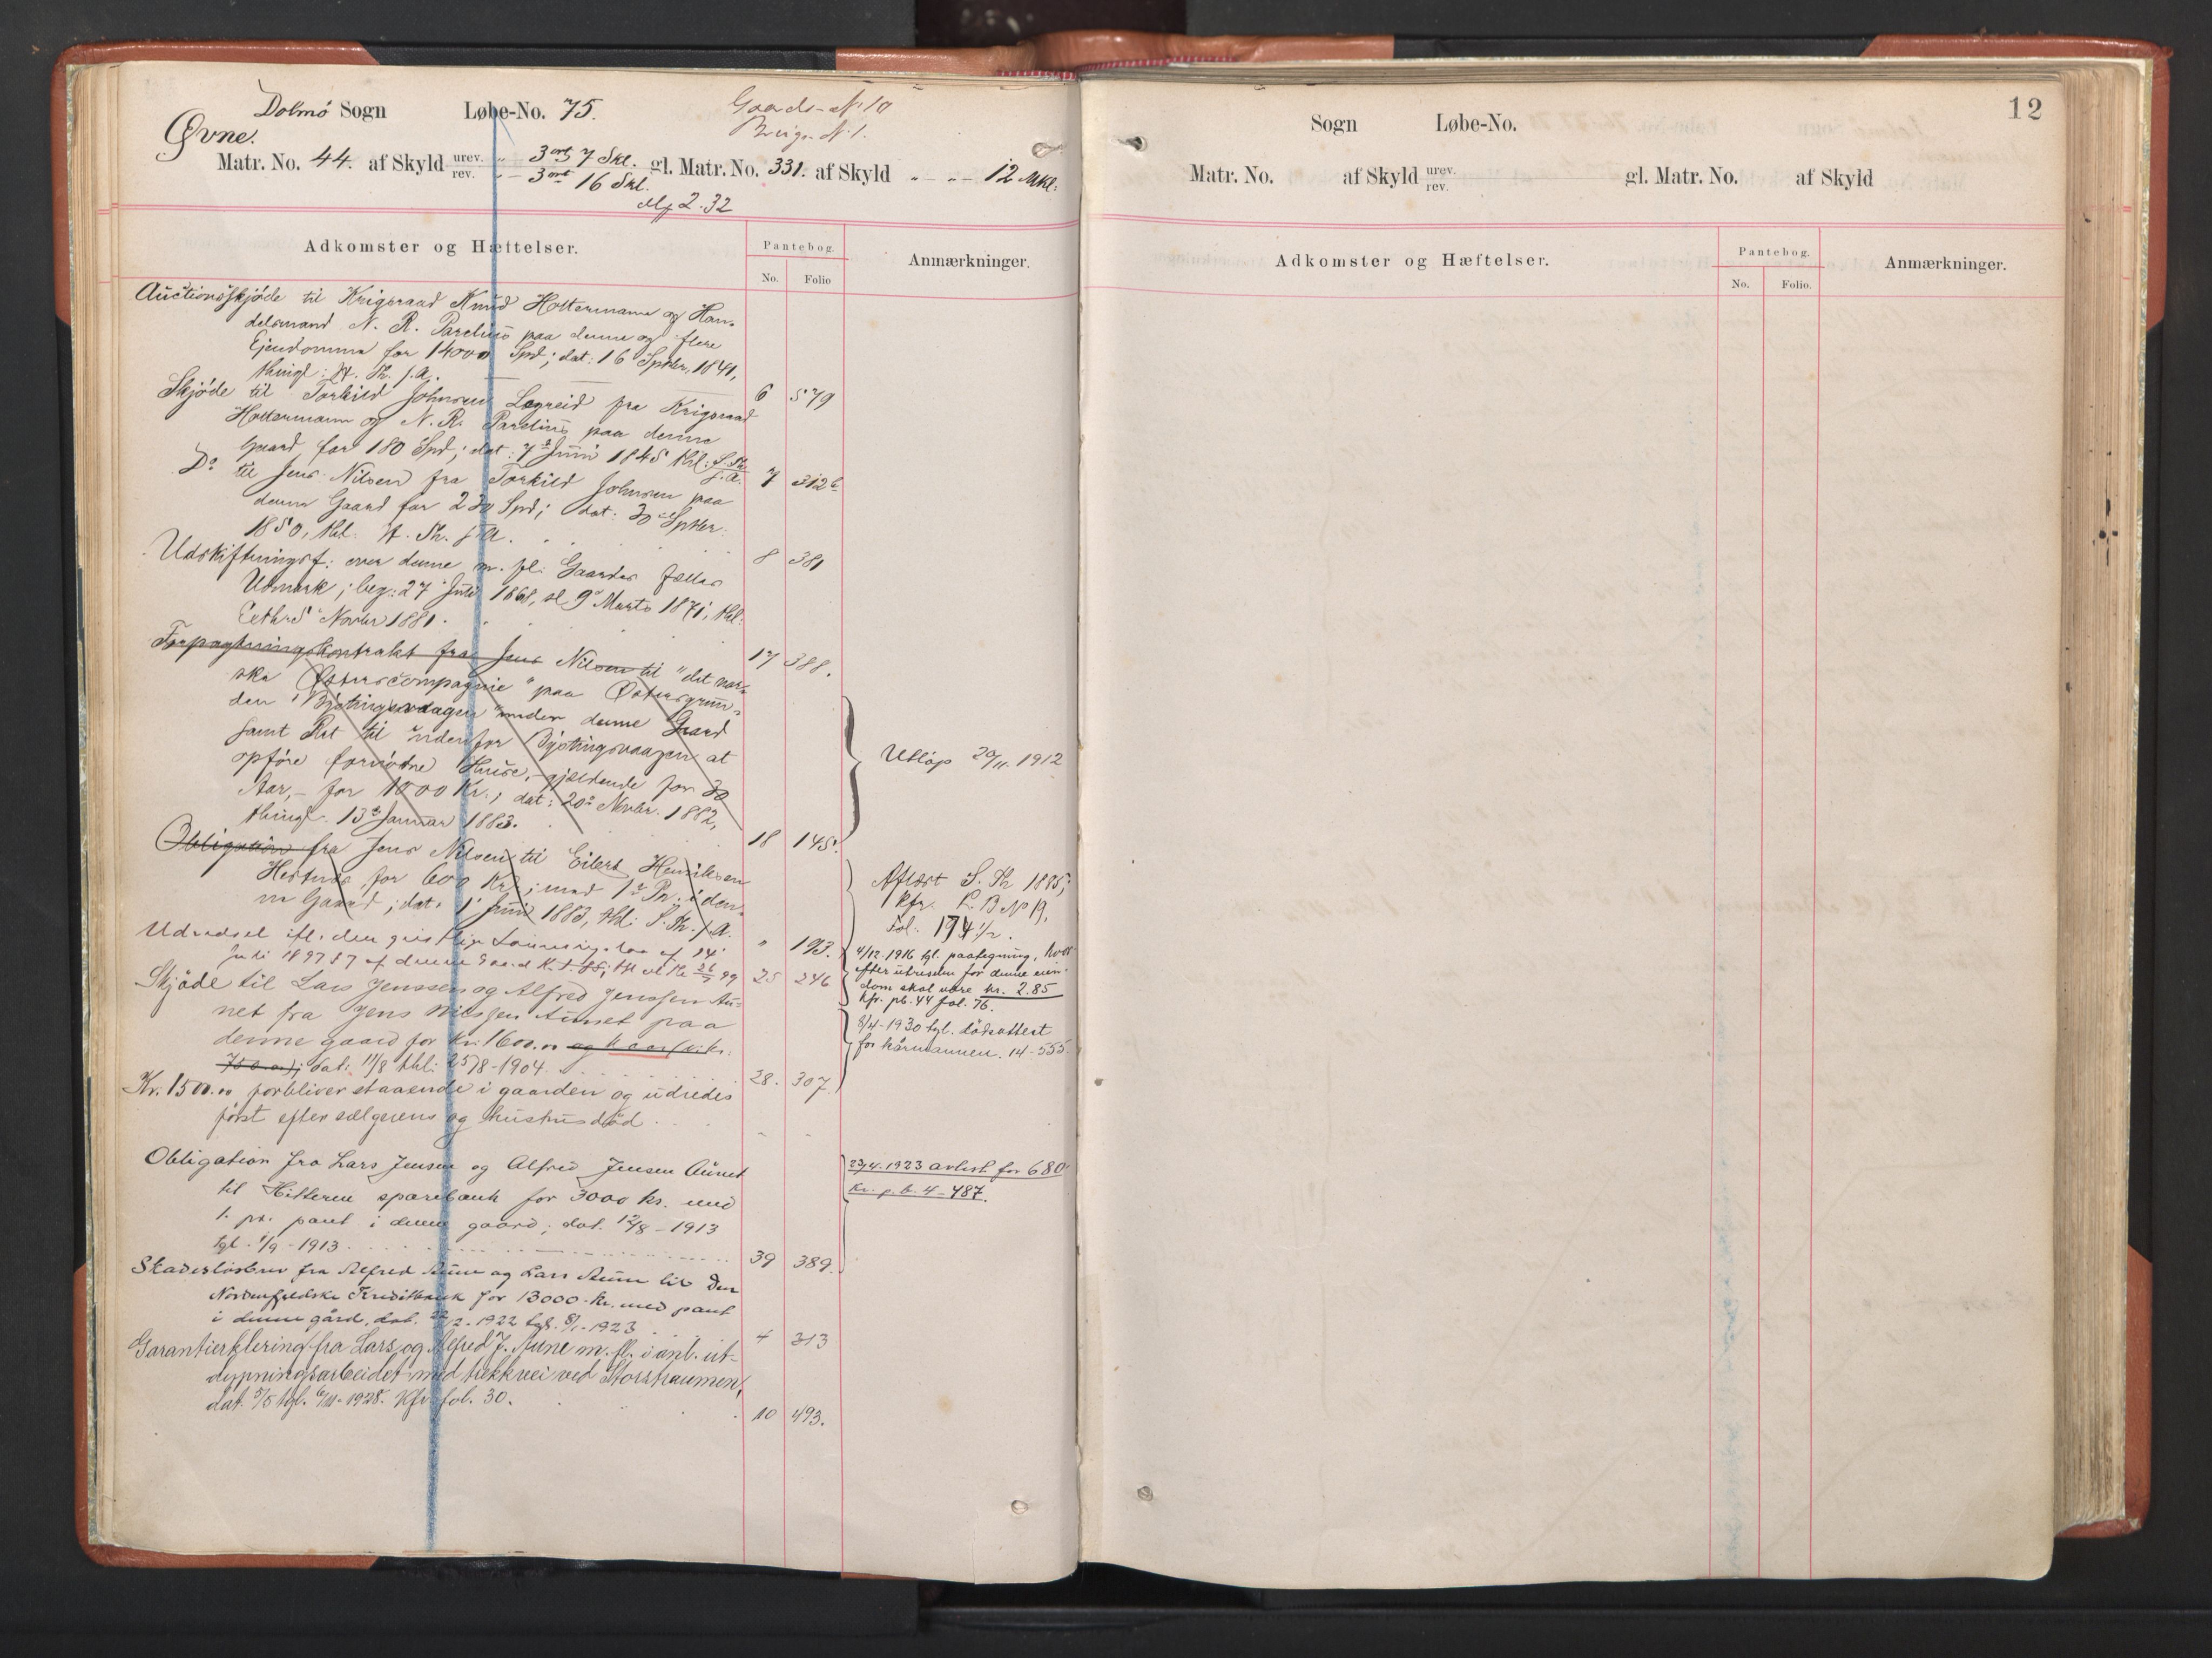 Dolmø Sogn Løbe-No. 75. Gaards-No 10
Øvne. Brugs-No 1.
Matr. No. 44. af Skyld urev. " - 3 ort 7 Skl. gl. Matr. No. 331. af Skyld " - " - 12 Mkl.
rev. " - 3 ort 16 Skl.
Mk 2.32
Adkomster og Hæftelser. Pantebog. No. Folio Anmærkninger.
Auctionsskjøde til Krigsraad Knud Holtermann og Han-
delsmand N. R. Parelius paa denne og flere
Ejendomme for 14000 Spd; dat: 16 Septbr. 1841,
thingl: H. Th. s. A. 6 579
Skjøde til Torkild Johnsen Legreid fra Krigsraad
Holtermann og N. R. Parelius paa denne
Gaard for 180 Spd; dat: 7de Juni 1845 thl: S. Th.
s. A. 7 312 b
Do til Jens Nilsen fra Torkild Johnsen paa
denne Gaard for 230 Spd; dat: 30 Septbr.
1850, thl. H. Th. s. A. 8 381
Udskiftningsf: over denne m. fl. Gaardes fælles
Udmark; beg: 27 Juli 1868, sl. 9 Marts 1871; thl:
Exthr. 5 Novbr 1881. 17 388.
Forpagtningskontrakt fra Jens Nilsen til "det nor-
ske Østerscompagnie" paa Østersgrun-
den i Bjøtingsvaagen under denne Gaard
samt Ret til udenfor Bjøtingsvaagen at
opføre fornødne Huse, gjældende for 30
Aar, - for 1000 Kr.; dat: 20de Novbr. 1882,
thingl. 13de Januar 1883. 18 145.
Utløp 20/11. 1912
Obligation fra Jens Nilsen til Eilert Henriksen
Hestnes for 600 Kr; med 1ste Pr. i den-
ne Gaard; dat. 1 Juni 1883, thl: S. Th. s. A. " 193.
Aflæst S. Th 1885;
kfr. P. B. No 19,
Fol: 194 1/2.
Udredsel ifl. den geistlige Lønningslov af 14
Juli 1897 § 7 af denne Gaard Kr. 1.88; thl. 26/7 99 25 246
4/12. 1916 tgl. paategning, hvor
efter utredslen for denne eien-
dom skal være kr. 2.85
kfr. pb. 44 fol. 76.
Skjøde til Lars Jenssen og Alfred Jenssen Au-
net fra Jens Nilssen Aunet paa
denne gaard for Kr. 1600.00 og kaar (vr. kr.
750.00); dat: 11/8 thl: 25/8-1904. 28. 307.
8/4-1930 tgl. dødsattest
for kårmannen. 14-555.
Kr. 1500.00 forbliver staaende i gaarden og udredes
først efter sælgerens og hustrus død. " "
Obligation fra Lars Jensen og Alfred Jensen Aunet
til Hitteren sparebank for 3000 kr. med
1. pr. pant i denne gaard; dat. 12/8-1913
tgl. 1/9-1913. 39 389.
23/4.1923 avlest for 680
kr. p.b. 4-487.
Skadesløsbrev fra Alfred Aune og Lars Aune til Den
Nordenfjeldske Kreditbank for 13000 kr. med pant
i denne gård, dat. 22/12-1922 tgl. 8/1-1923 4 313
Garantierklering fra Lars og Alfred J. Aune m. fl. i anl. ut-
dypningsarbeidet med trekkvei ved Storstraumen,
dat. 5/5 tgl. 6/11-1928. Kfr. fol. 30. 10 493.
12
Sogn Løbe-No.
Matr. No. af Skyld urev. gl. Matr. No. af Skyld
rev.
Adkomster og Hæftelser. Pantebog. No. Folio. Anmærkninger.